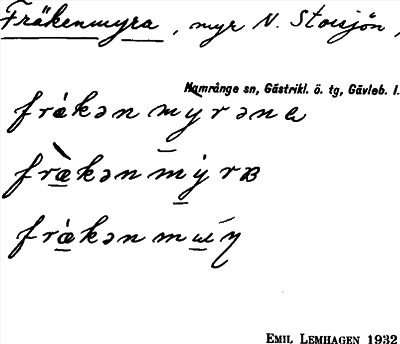 Fräkenmyra, myr N. Storsjön,
Hamrånge sn, Gästrikl. ö. tg, Gävleb. l.
frǽkǝn myrǝnɐ
fræ̀kǝn mýra
frǽkǝn
EMIL LEMHAGEN 1932